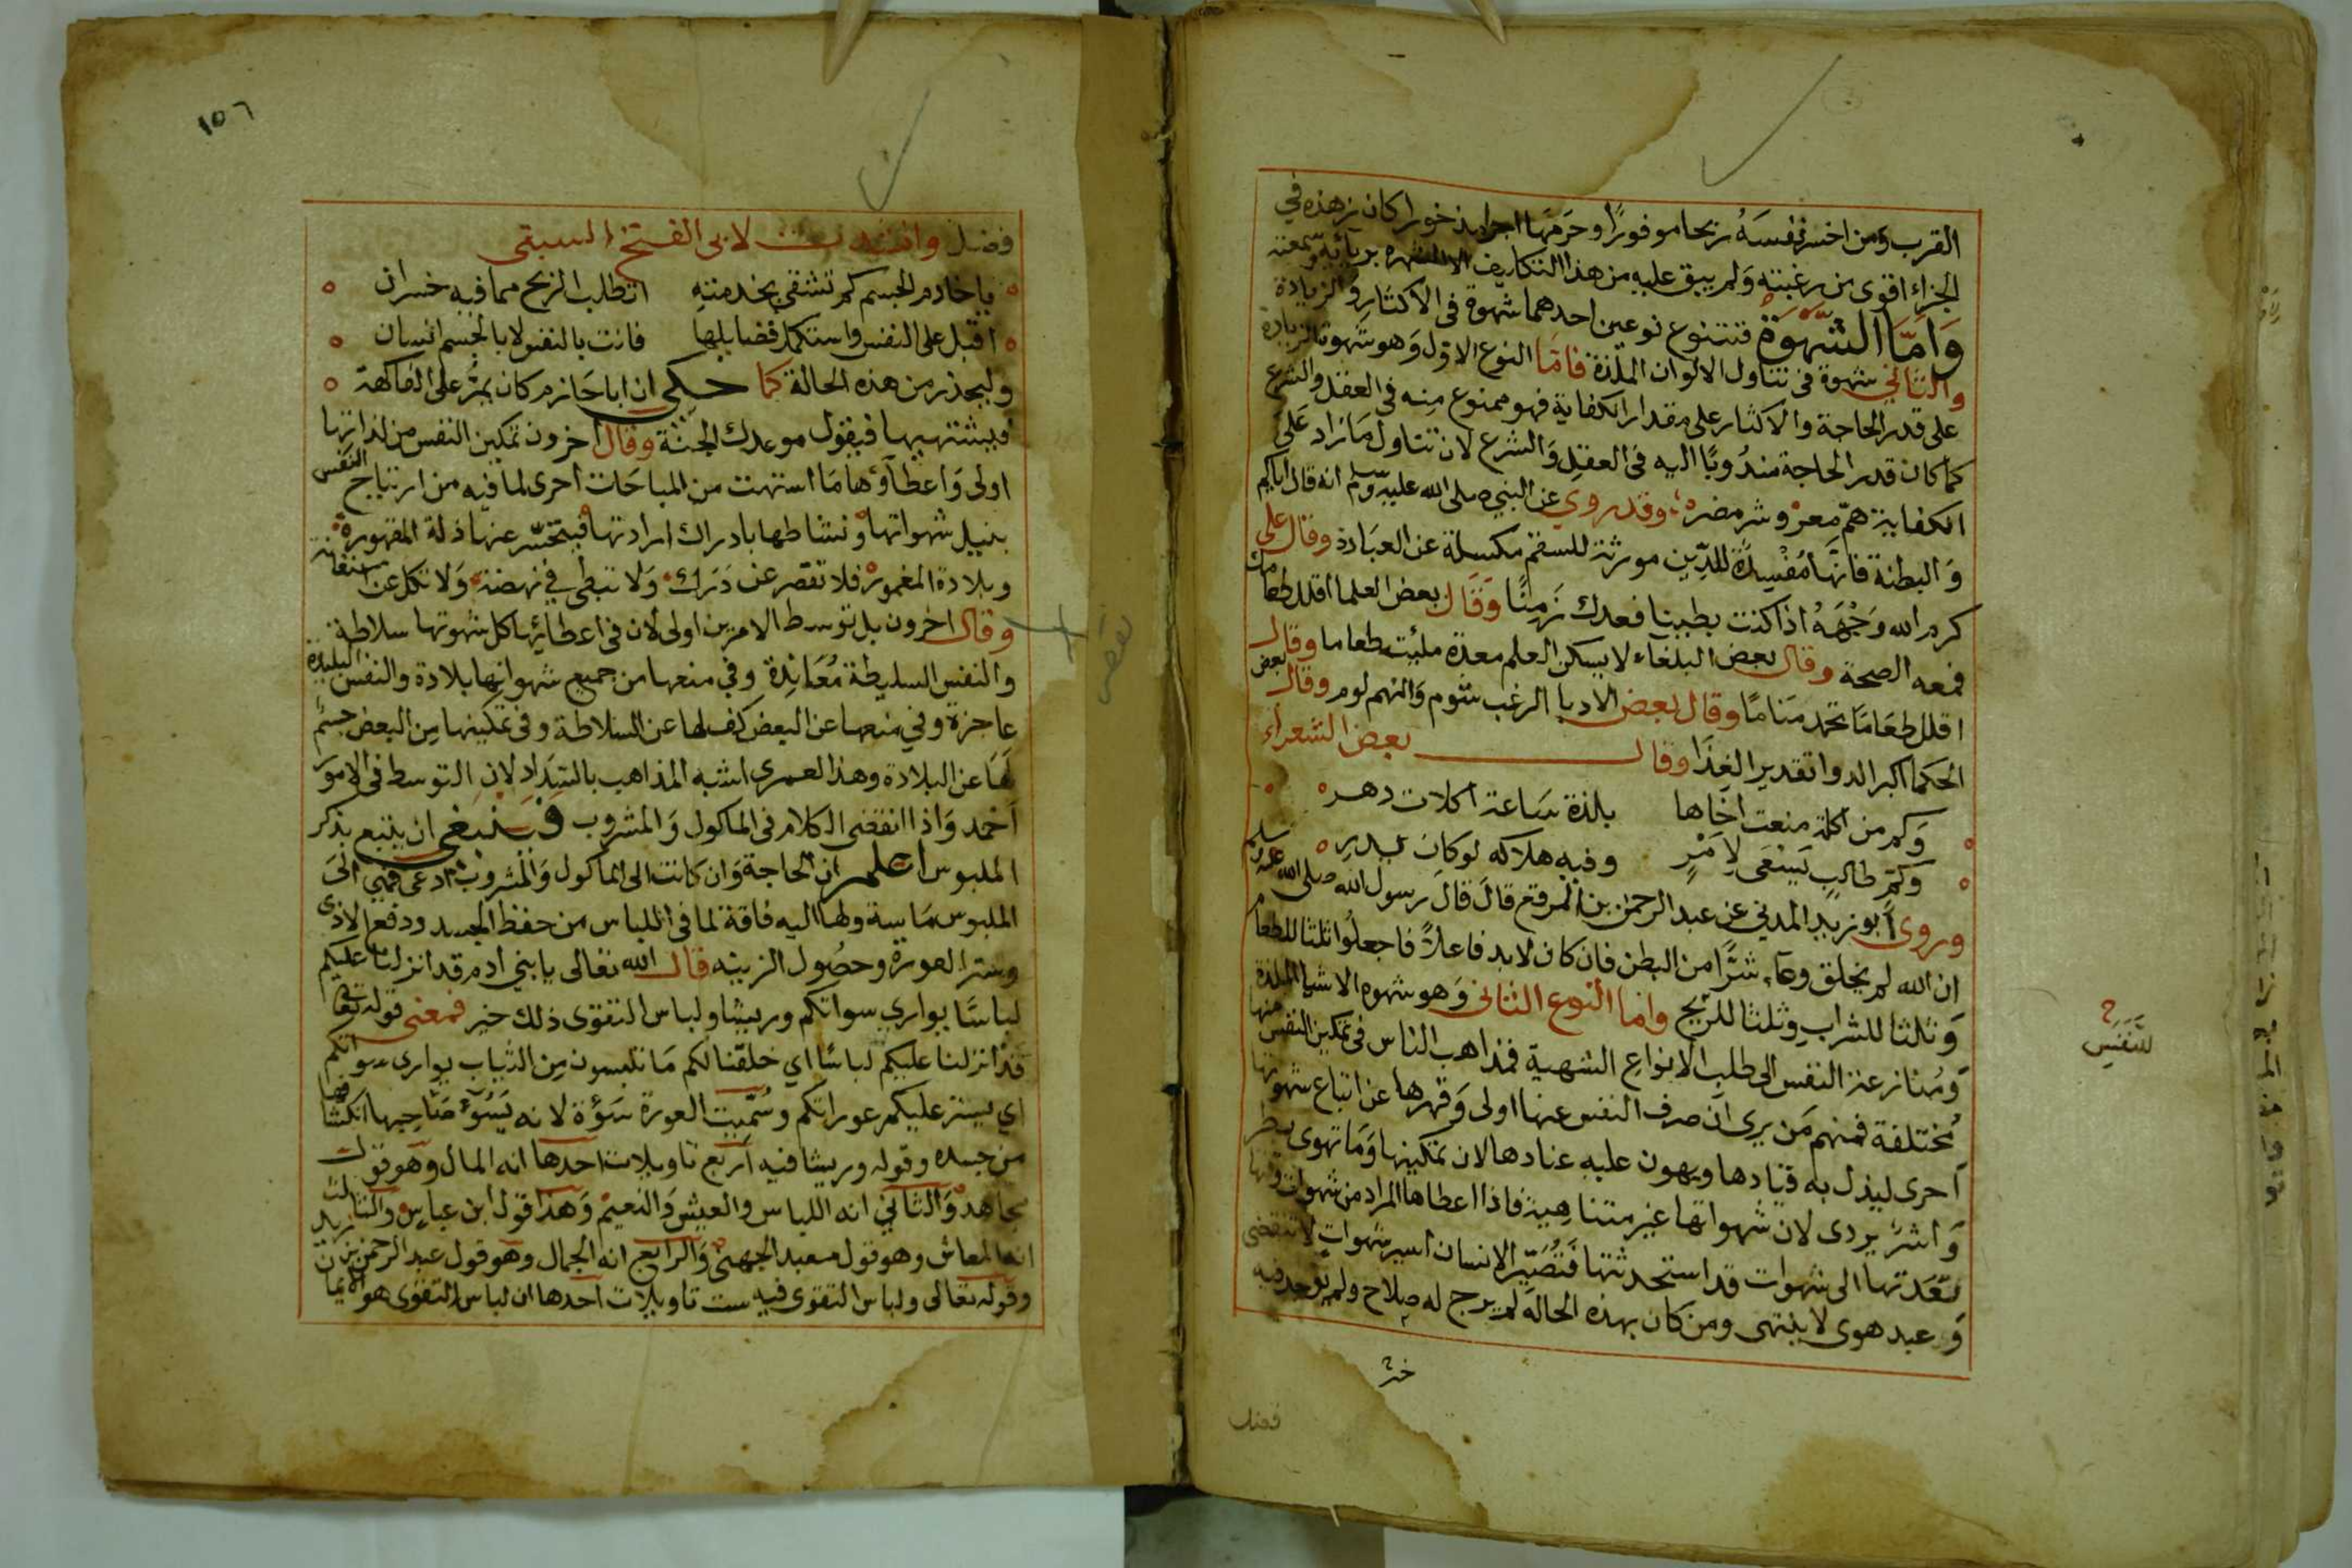 القرب ومن اخسر نفسه ربحا موفورا وحرمها اجرا مذخورا كان زهده في
الجزاء اقوى من رغبته ولم يبق عليه من هذا التكليف الا الشهرة بريائه وسمعته
وَاَمّا الشَّهْوَة فتتنوع نوعين احدهما شهوة في الاكثار والزيادة
والثاني شهوة في تناول الالوان الملذة فامّا النوع الاول وهو شهوة الزيادة
على قدر الحاجة والاكثار على مقدار الكفاية فهو ممنوع منه في العقل والشرع
كما كان قدر الحاجة مندُوبًا اليه في العقل والشرع لان تناول ما زاد على
الكفاية همّ معر وشر مضر وقد روي عن النبي صلى الله عليه وسلم انه قال اياكم
وَالبطنة فانها مُفْسِدَة للدِّين مورثة للسقم مكسلة عن العبَادة وقال على
كرم الله وَجْهَهُ اذا كنت بطينا فعدك زَمِنًا وَقَال بعض العلما اقلل طعامك
فمعه الصحة وقال بعض البلغاء لا يسكن العلم معدة ملئت طعاما وقال بعض
اقلل طعَامًا تحمد مَنامًا وقال بعض الادبا الرغب شوم والنهم لوم وقال
الحكما اكبر الدوا تقدير الغِذَا وقال بعض الشعراء
وَكم من اكلة منعت اخاها بلذة سَاعة اكلات دهر
وَكم طالب يَسْعَى لاَمْرٍ وفيه هلاكه لو كان يدري
وروى ابو زيد المدني عن عبد الرحمن بن المرقع قال قال رسول الله صلى الله عليه وسلم
ان الله لم يخلق وعآء شرًّا من البطن فان كان لابد فاعلاً فاجعلُوا ثلثا للطعام
وَثلثا للشراب وثلثا للريح وامّا النوع الثاني وَهو شهوة الاشيا الملذة
وَمُنازعة النفس الى طلب الانواع الشهية فمذاهب الناس في تمكين النفس منها
مُختلفة فمنهم مَن يرى ان صرف النفس عنها اولى وَقهرها عن اتباع شهواتها
اَحرى ليذل به قيادها ويهون عليه عنادها لان تمكينها وَمَا تهوى بطر
وَاشرٌ يردى لان شهواتها غير متناهِية فاذا اعطاها المراد من شهوات وقتها
تعَدتها الى شهوات قد استحدثتها فَتُصَيّر الانسان اسير شهوات لا تنقضى
وَعبد هوى لا ينتهى ومن كان بهذه الحالة لم يرج له صلاح ولم يوجد فيه
فضل
للنَّفَسِ
١٥٦
فضل وانشدت لابى الفتح السبتى
يا خادم الجسم كم تشقى بخدمته اتطلب الربح مما فيه خسران
اقبل على النفس واستكمل فضايلها فانت بالنفس لا بالجسم انسان
وليحذر من هذه الحالة كما حكي ان اباحازم كان يمرُّ على الفاكهة
فيشتهيها فيقول موعدك الجنّة وقال اخرون تمكين النفس من لذاتها
اولى وَاعطآؤها مَا اشتهت من المباحَات احرى لما فيه من ارتياح النفس
بنيل شهواتها ونشاطها بادراك ارادتها فيتحسّر عنها ذلة المقهورة
وبلادة المغمور فلا تقصر عن دَرَك وَلا تبطى في نهضة وَلا تكل عن استعانة
وقال اخرون بل توسط الامرين اولى لان في اعطائها كل شهوتها سلاطة
والنفس السليطة مُعَانِدة وفي منعها من جميع شهواتها بلادة والنفس البليدة
عاجزة وفي منعها عن البعض كف لها عن السلاطة وفي تمكينها مِن البعض حسم
لهَا عن البلادة وهذا لعمرى اشبه المذاهب بالسَّدَاد لان التوسط في الامور
اَحمد وَاذا انقضى الكلام في الماكول وَالمشروب فينبغي ان يتبع بذكر
الملبوس اعلم ان الحاجة وَان كانت الى الماكول وَالمشروب ادعى فهي الَى
الملبوس مَاسة ولها اليه فاقة لما في اللباس من حفظ الجسد ودفع الاذى
وستر العورة وحصُول الزينة قال الله تعالى يا بني ادم قد انزلنا عليكم
لباسًا يواري سواتكم وريشا ولباس التقوى ذلك خير فمعنى قوله تعالى
قد انزلنا عليكم لباسًا اي خلقنا لكم مَا تلبسون مِن الثياب يوارى سواتكم
اي يستر عليكم عوراتكم وسُمّيت العورة سَؤة لانه يَسُوْءُ صَاحبها انكشافها
من جسده وقوله وريشا فيه اربع تاويلات احدها انه المال وهو قول
مجاهد وَالثاني انه اللباس والعيش وَالنعيم وَهذا قول ابن عباس والثالث
انه المعاش وهو قول معبد الجهنى وَالرابع انه الجمال وهو قول عبد الرحمن بن زيد
وقوله تعالى ولباس التقوى فيه ست تاويلات احدها ان لباس التقوى هو الايمان